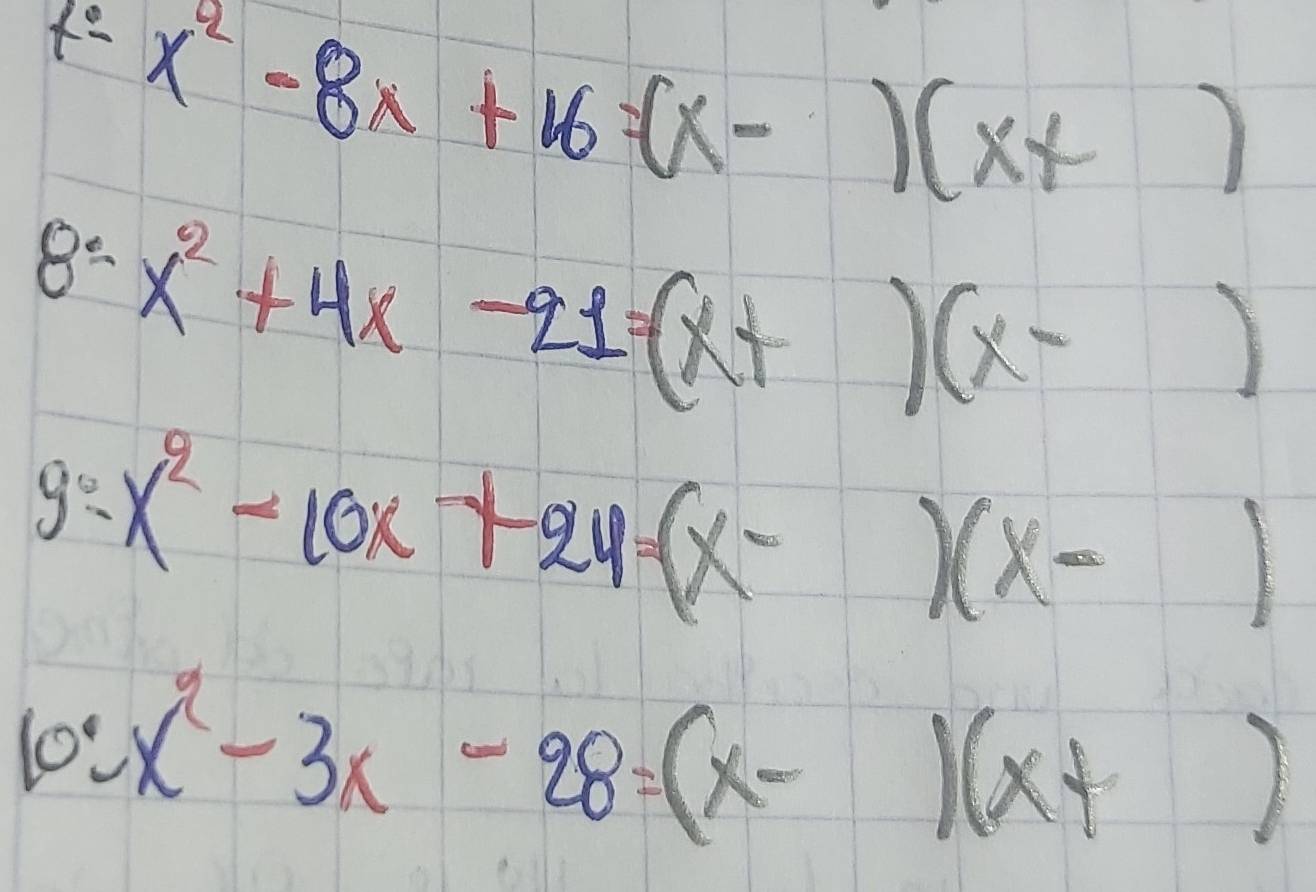 7:- x² - 8x + 16 = (x -      )(x +      )
8:- x² + 4x - 21 = (x +      )(x -      )
9:- x² - 10x + 24 = (x -      )(x -      )
10:- x² - 3x - 28 = (x -      )(x +      )